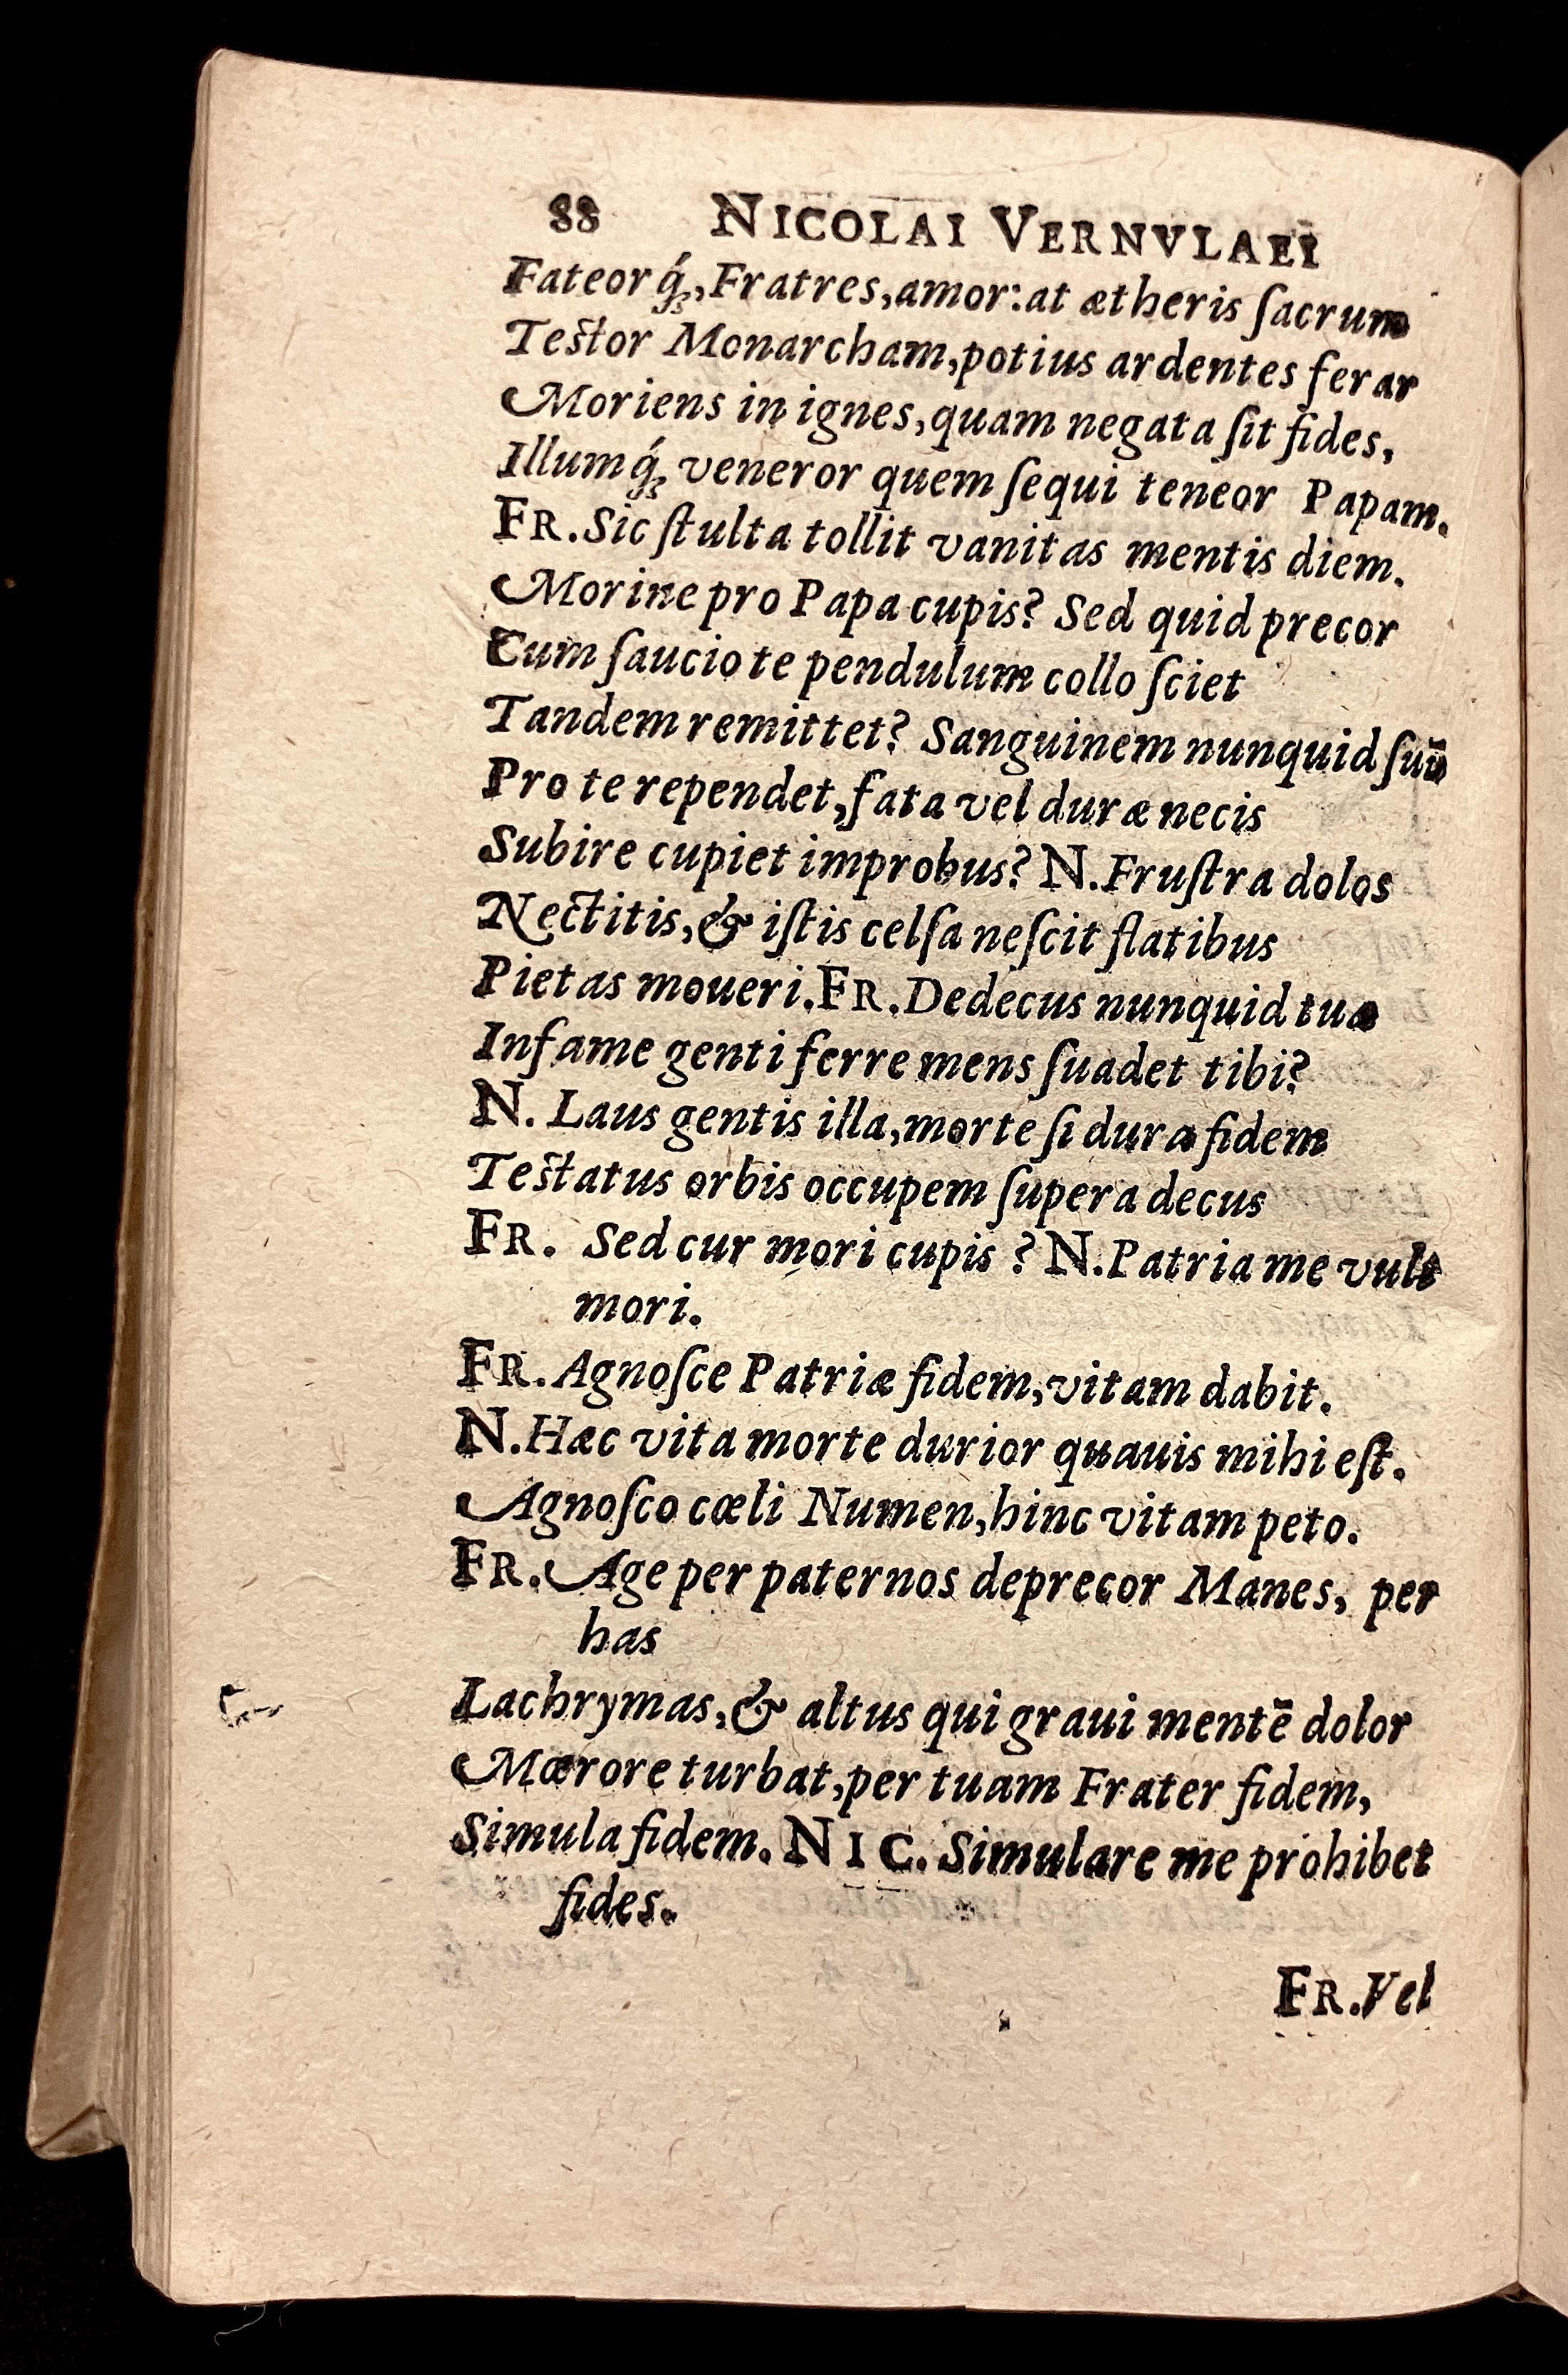 88 NICOLAI VERNVLAEI
Fateor q́ꝫ, Fratres, amor: at ætheris ſacrum
Teſtor Monarcham, potius ardentes ferar
Moriens in ignes, quam negata ſit fides,
Illumq́ꝫ veneror quem ſequi teneor Papam.
FR. Sic ſtulta tollit vanitas mentis diem.
Morine pro Papa cupis? Sed quid precor
Cum ſaucio te pendulum collo ſciet
Tandem remittet? Sanguinem nunquid ſuū
Pro te rependet, fata vel duræ necis
Subire cupiet improbus? N. Fruſtra dolos
Nectitis, & iſtis celſa neſcit flatibus
Pietas moueri. FR. Dedecus nunquid tuæ
Infame genti ferre mens ſuadet tibi?
N. Laus gentis illa, morte ſi dura fidem
Teſtatus orbis occupem ſupera decus
FR. Sed cur mori cupis? N. Patria me vult
mori.
FR. Agnoſce Patriæ fidem, vitam dabit.
N. Hæc vita morte durior quauis mihi eſt.
Agnoſco cœli Numen, hinc vitam peto.
FR. Age per paternos deprecor Manes, per
has
Lachrymas, & altus qui graui mentē dolor
Mœrore turbat, per tuam Frater fidem,
Simula fidem. NIC. Simulare me prohibet
fides.
FR. Vel